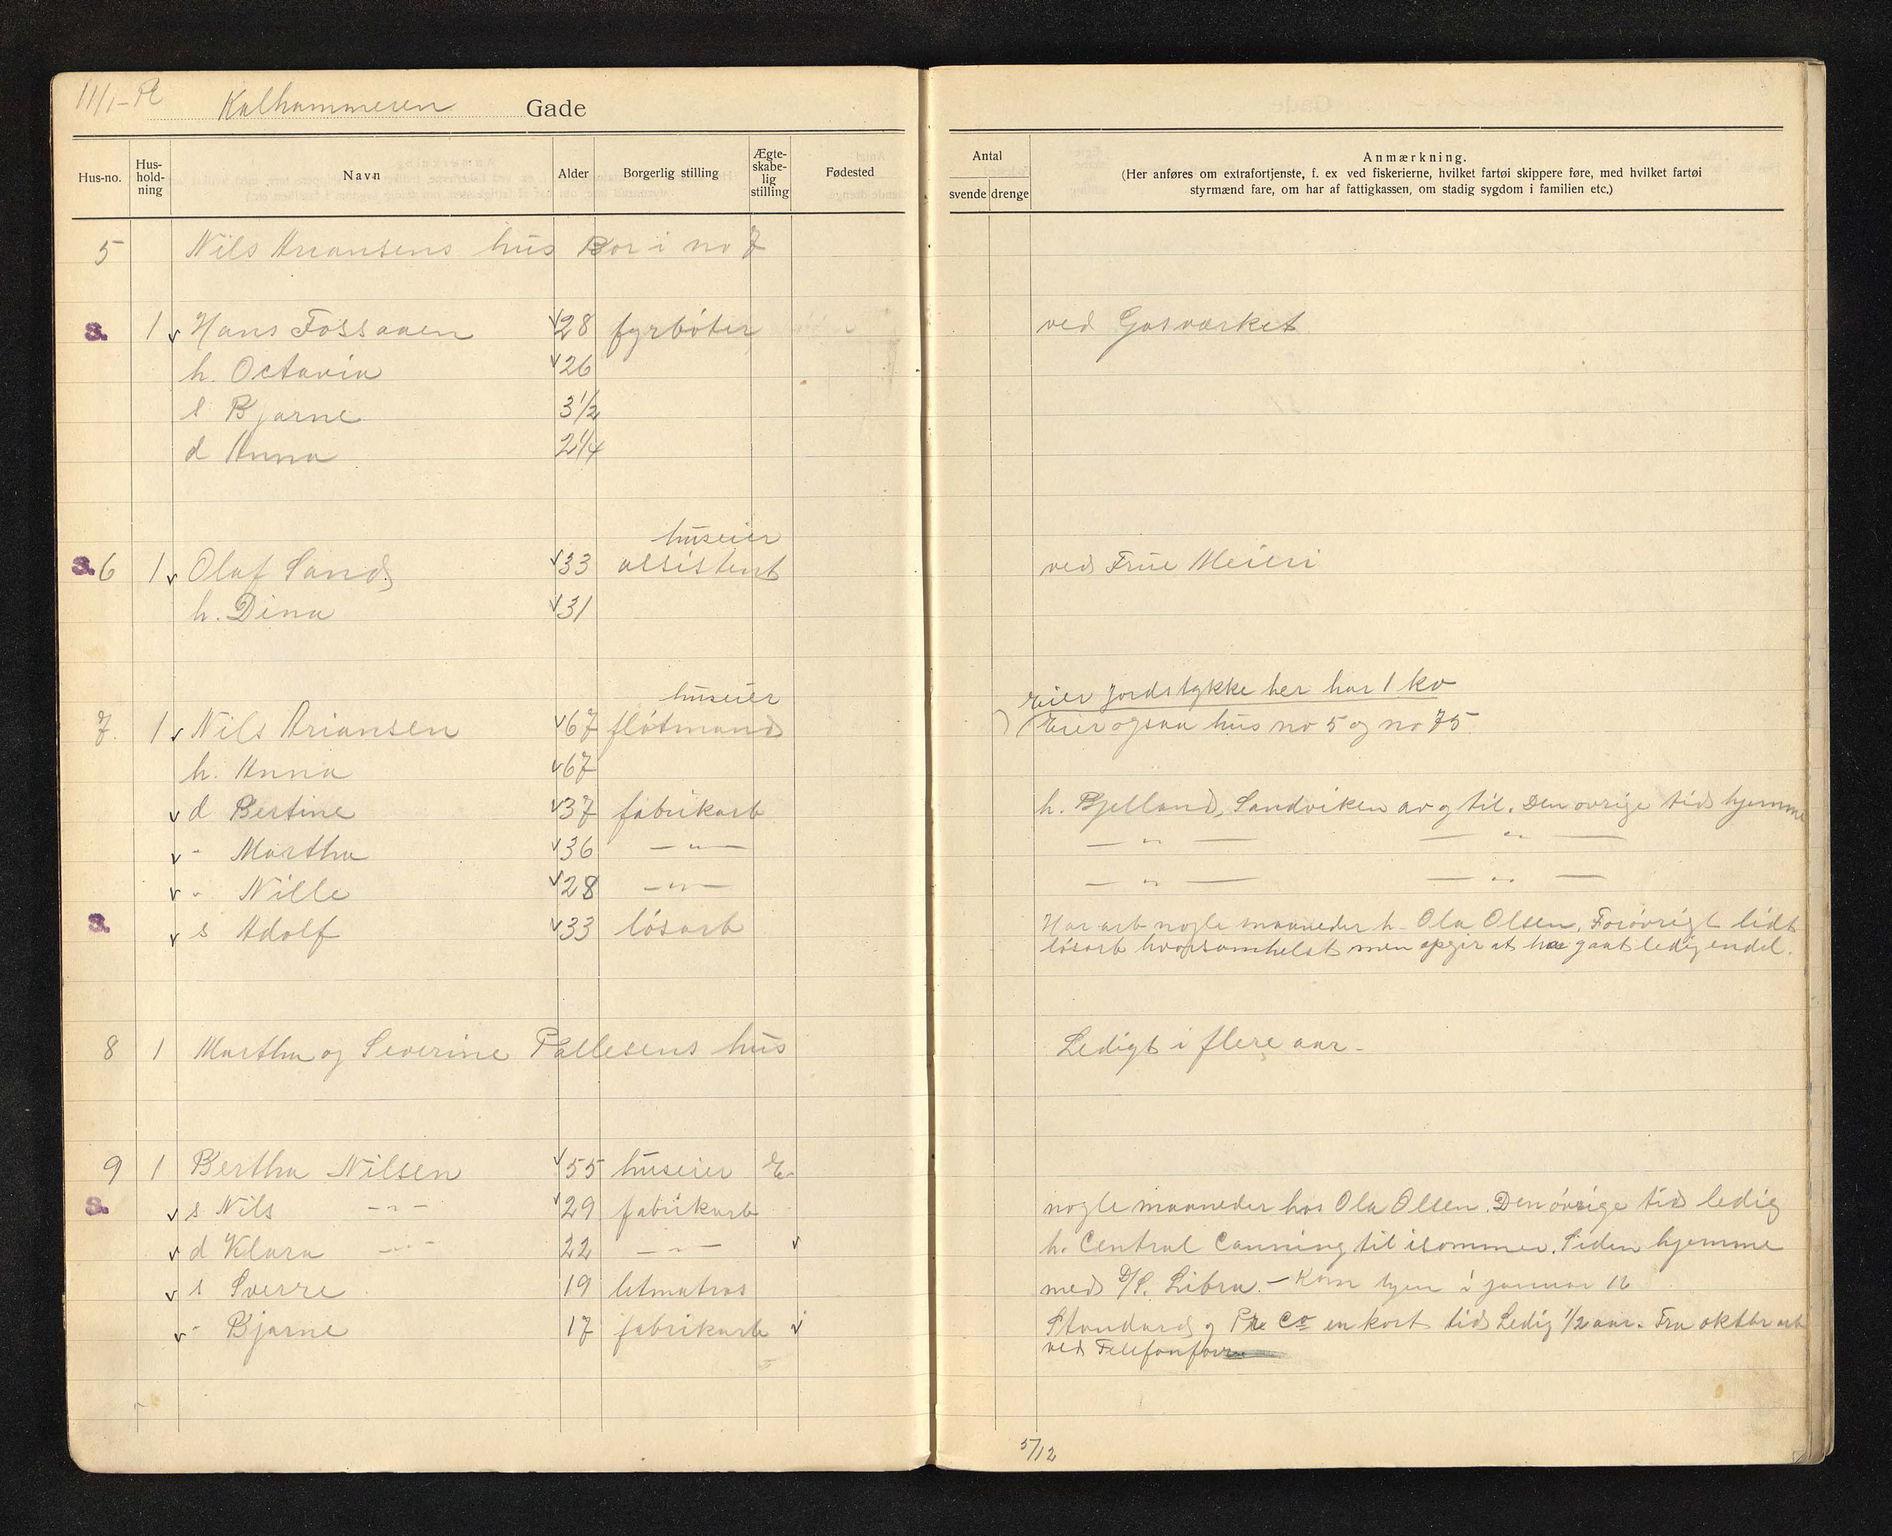 11/1-
Kalhammeren Gade
Hus-no. Hus-hold-ning Navn Alder Borgerlig stilling Ægte-skabe-lig stilling Fødested
Antal
svende drenge
Anmærkning.
(Her anføres om extrafortjenste, f. ex ved fiskerierne, hvilket fartøi skippere føre, med hvilket fartøi
styrmænd fare, om har af fattigkassen, om stadig sygdom i familien etc.)
5 Nils Ariansens hus Bor i no 7
S. 1 v Hans Fossaaen v28 fyrböter ved Gasværket
h. Octavia v26
s Bjarne 3 1/2
d Anna 2 1/4
huseier
S. 6 1 v Olaf Sand v33 assistent ved Frue Meieri
h. Dina v31
huseier eier jordstykke her har 1 ko
7. 1 v Nils Ariansen v67 flötmand Eier ogsaa hus no 5 og no 75
h. Anna v67
v d Bertine v37 fabrikarb h. Bjelland, Sandviken av og til. Den ovrige tid hjemme
v - Martha v36 — " — — " — — " —
v - Nille v28 — " — — " — — " —
S. v s Adolf v33 lösarb Har arb nogle maaneder h. Ola Olsen. Forövrigt lidt
lösarb hvorsomhelst men opgir at ha gaat ledig endel.
8 1 Martha og Severine Pallesens hus Ledigt i flere aar -
9 1 Bertha Nilsen v55 huseier E.
S. v s Nils — " — v29 fabrikarb nogle maaneder hos Ola Olsen. Den övrige tid ledig
v d Klara — " — 22 — " — v h. Central Canning til isommer. Siden hjemme
v s Sverre 19 letmatros med D/S. Libra. - Kom hjem i januar 16
v - Bjarne 17 fabrikarb v Standard og Pre Co en kort tid Ledig 1/2 aar. Fra oktbr arb
ved
5/12